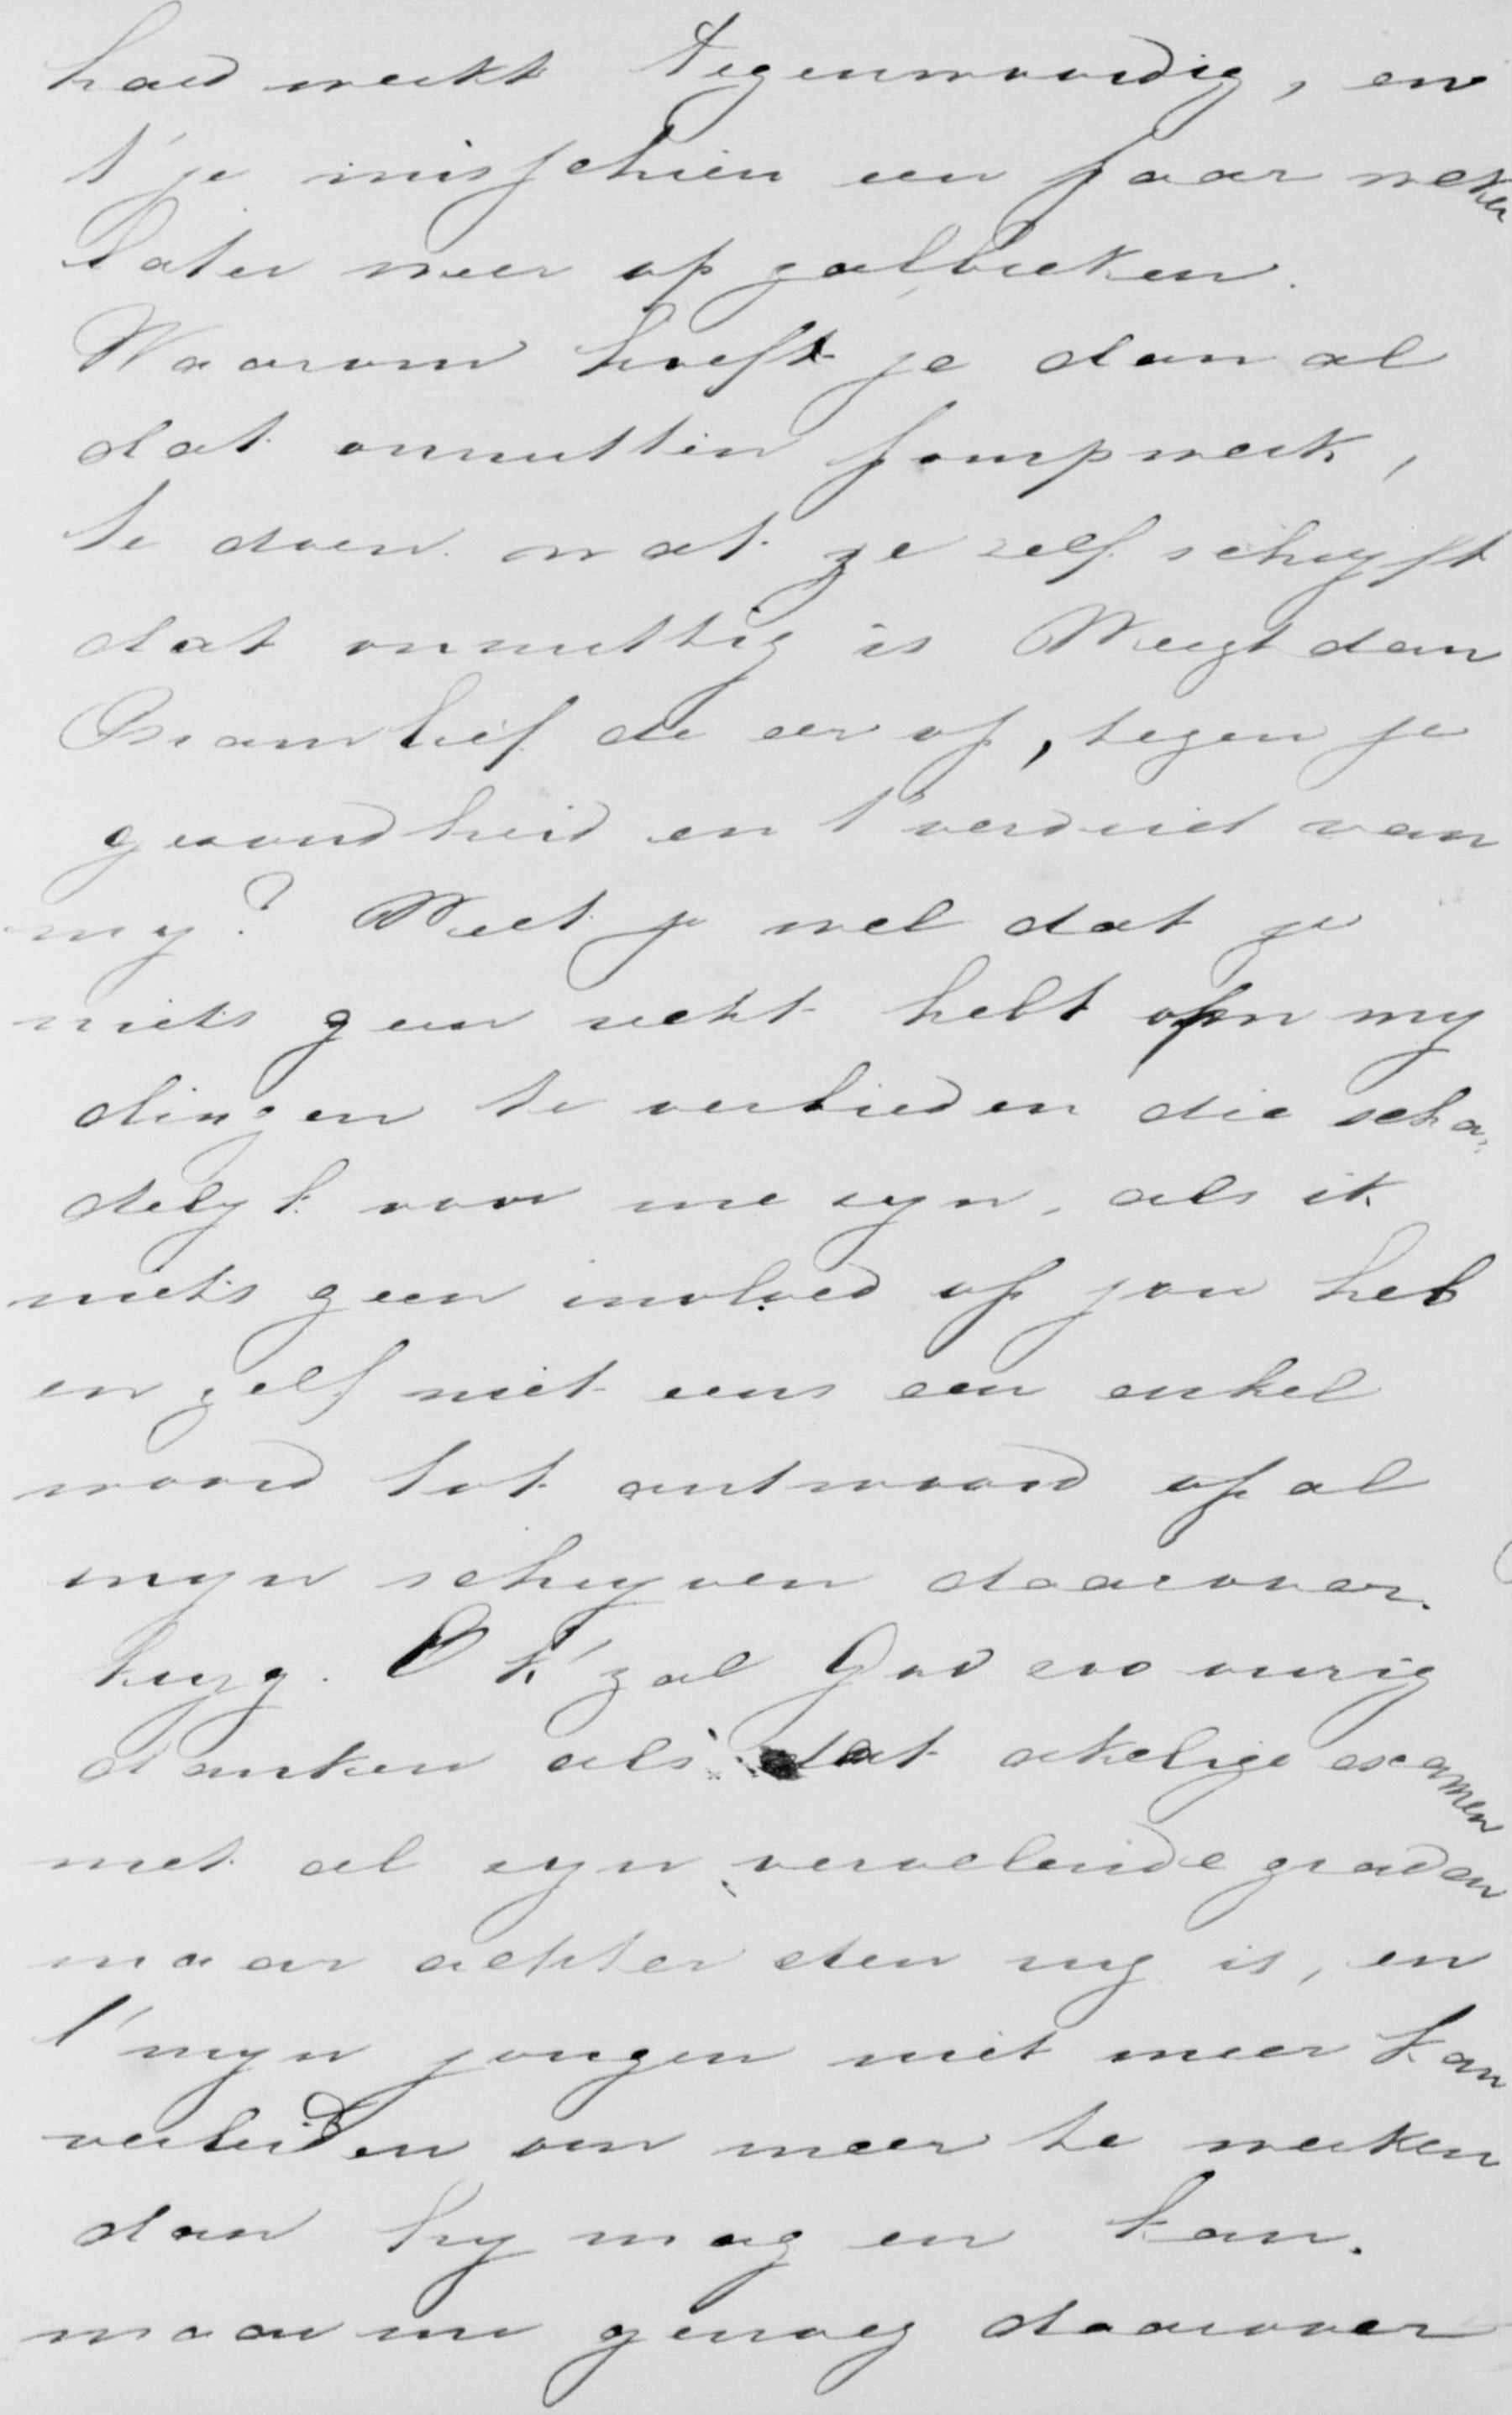 hard werkt tegenwoordig, en
t' je misschien een paar weken
later weer op zal breken.
Waarom hoeft je dan al
dat onnutten pompwerk,
te doen wat je zelf schryft
dat onnuttig is Weegt dan
Bram lief de eer op, tegen je
gezondheid en t' verdriet van
my? Weet je wel dat je
niets geen recht hebt om my
dingen te verbieden die scha-
delyk voor me zyn, als ik
niets geen invloed op jou heb
en zelf niet eens een enkel
woord tot antwoord op al
myn schryven daarover.
kryg. O k' zal God zoo vurig
danken als dat akelige examen
met al zyn vervelende graden
maar achter den rug is, en
t' myn jongen niet meer kan
verleiden om meer te werken
dan hy mag en kan.
maar nu genoeg daarover